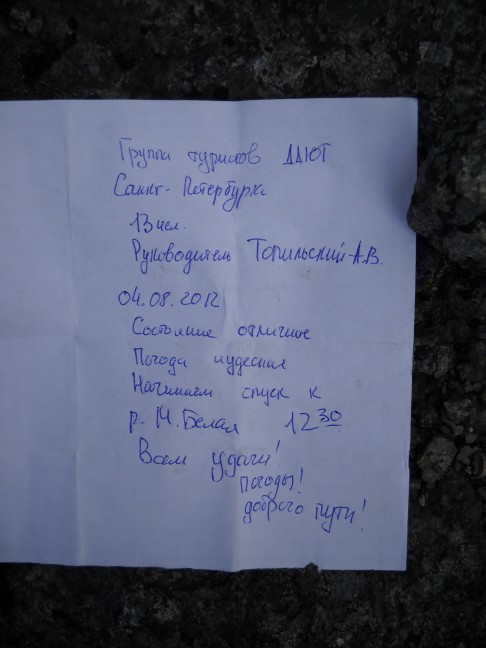 Группа туристов ДДЮТ
Санкт-Петербурга
13 чел.
Руководитель Топильский А.В.
04.08.2012
Состояние отличное
Погода чудесная
Начинаем спуск к
р. М. Белая 12 30
Всем удачи!
погоды!
доброго пути!